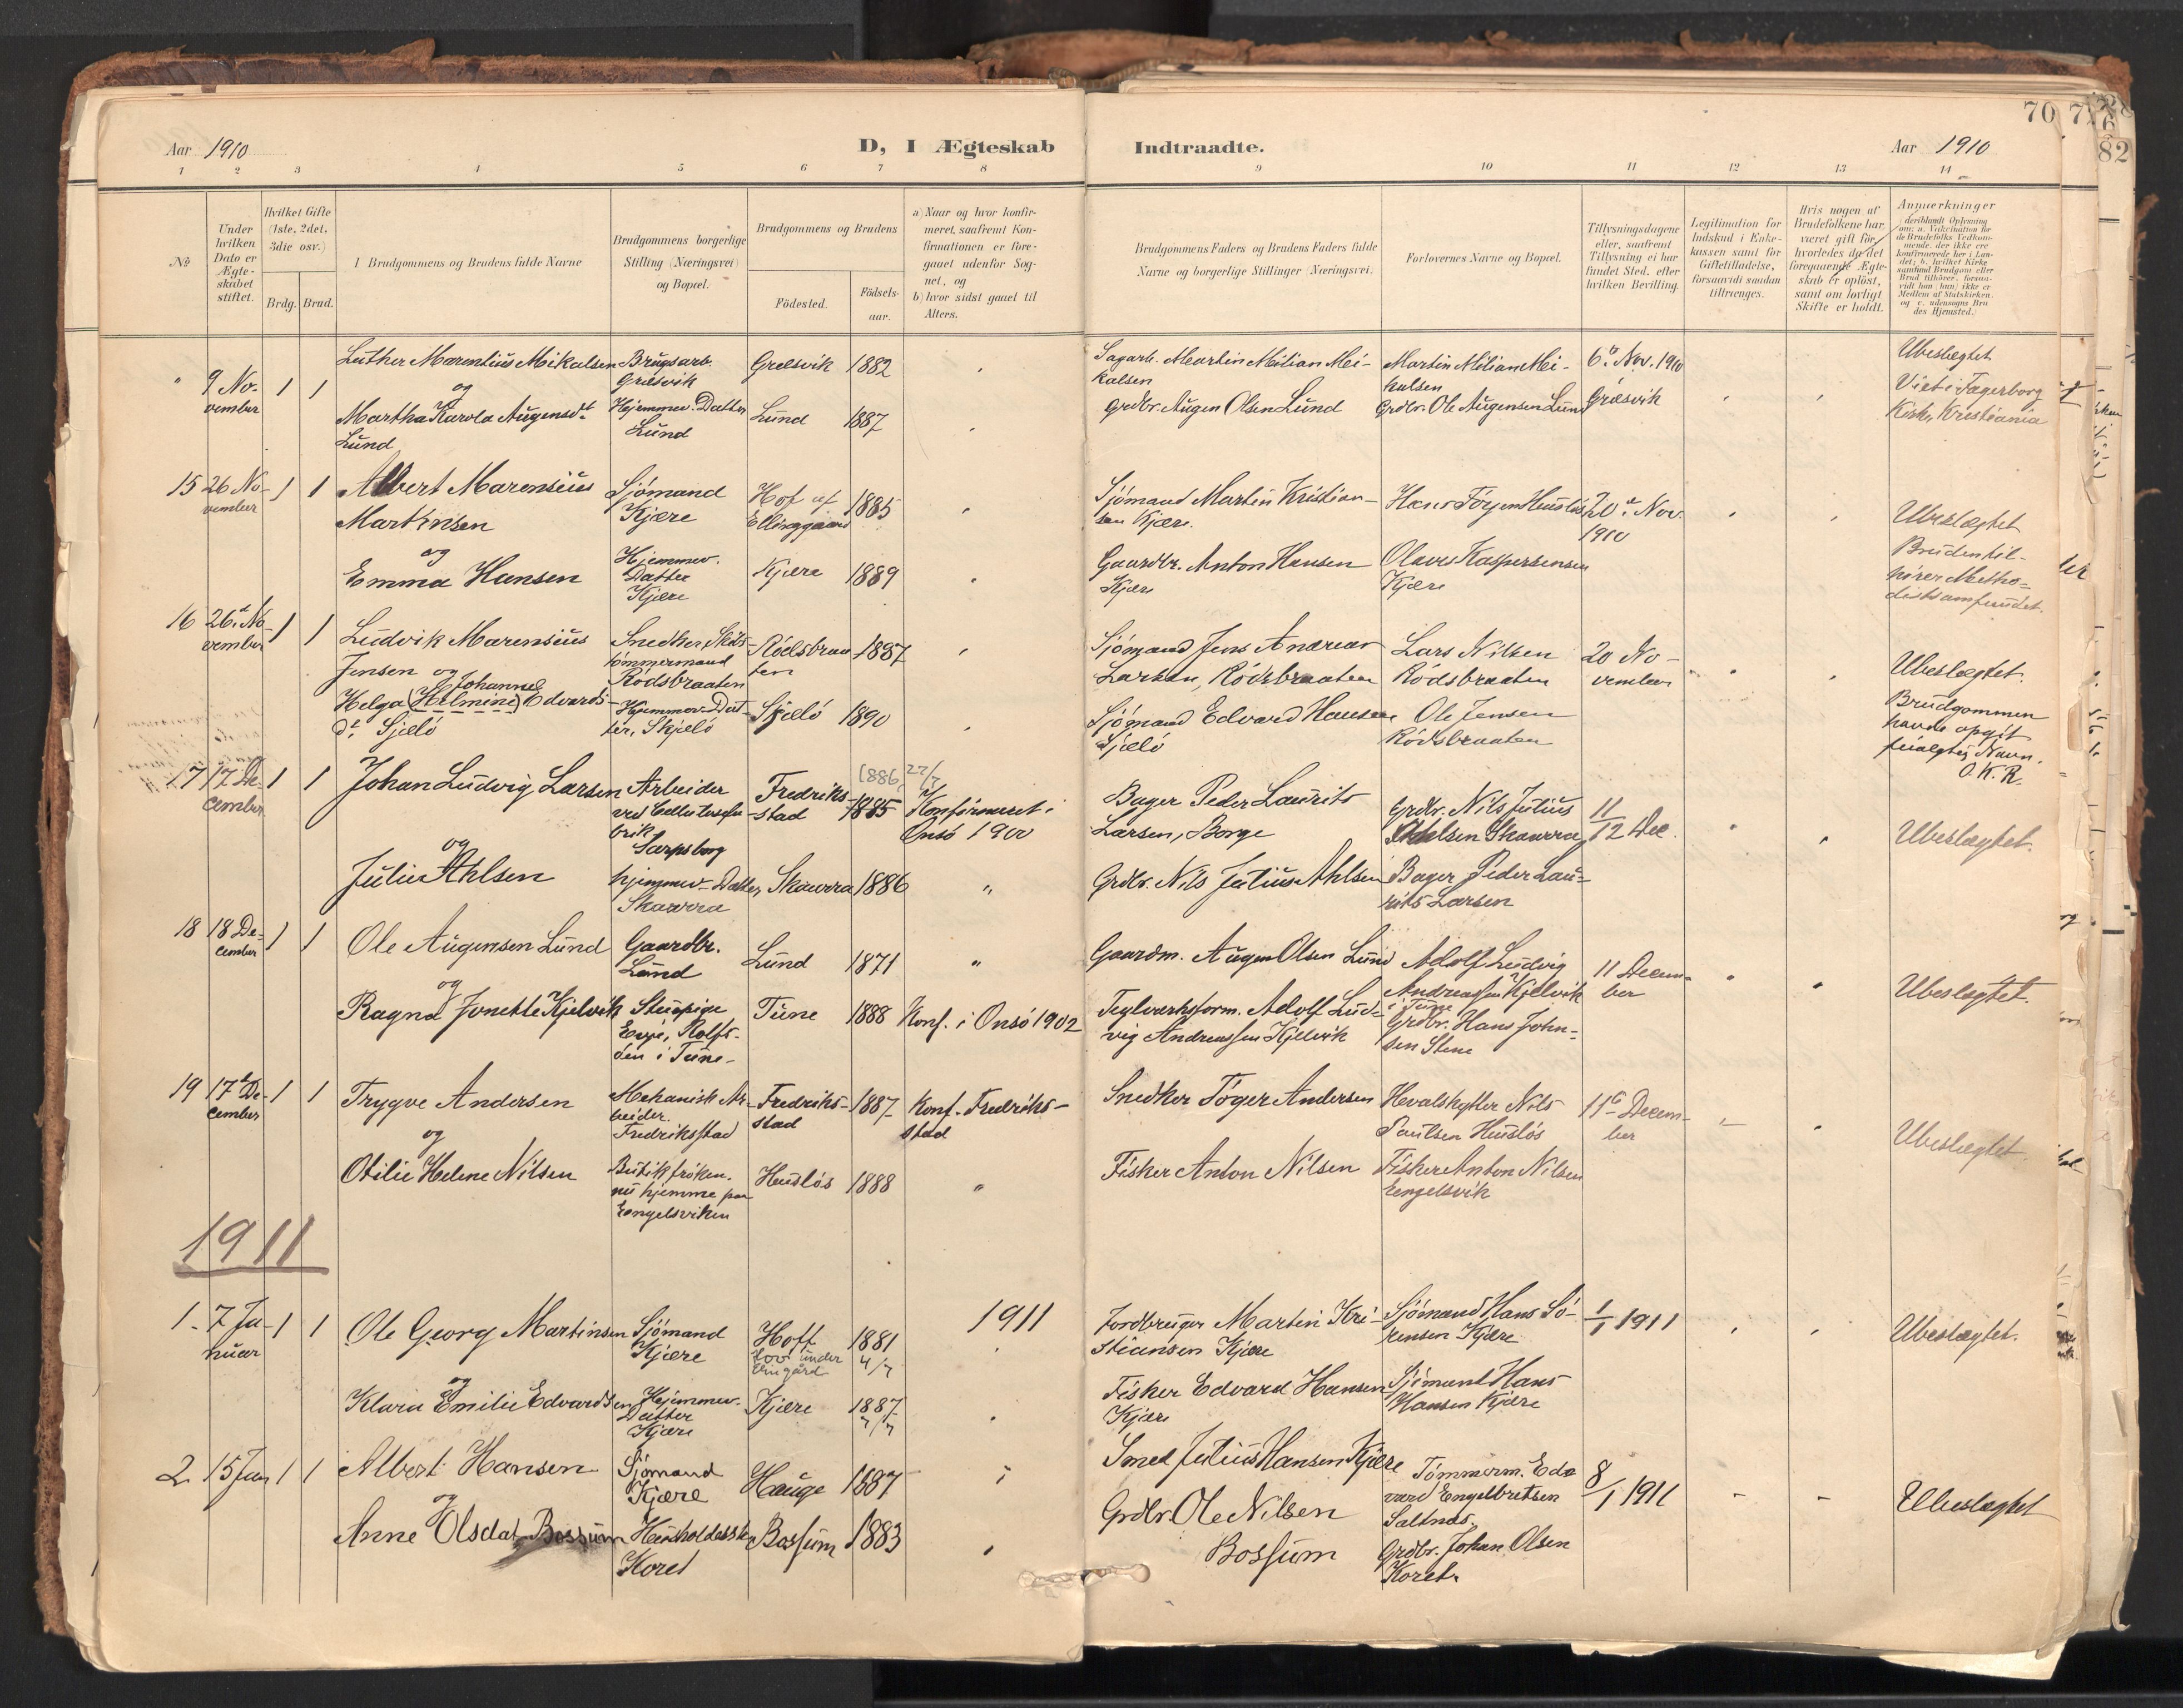 Aar 1910
D, I Ægteskab
Indtraadte.
Aar 1910
70
82
1 2 3 4 5 6 7 8 9 10 11 12 13 14
No
Under hvilken Dato er Ægteskabet stiftet.
Hvilket Gifte (1ste, 2det, 3die osv.)
Brdg. Brud.
Brudgommens og Brudens fulde Navne
Brudgommens borgerlige Stilling (Næringsvei) og Bopæl.
Brudgommens og Brudens
Födested.
Födsels-aar.
a) Naar og hvor konfir-
meret, saafremt Kon-
firmationen er fore-
gaaet udenfor Sog-
net, og
b) hvor sidst gaaet til
Alters.
Brudgommens Faders og Brudens Faders fulde
Navne og borgerlige Stillinger (Næringsvei).
Forlovernes Navne og Bopæl.
Tillysningsdagene
eller, saafremt
Tillysning ei har
fundet Sted, efter
hvilken Bevilling.
Legitimation for
Indskud i Enke-
kassen samt for
Giftetilladelse,
forsaavidt saadan
tiltrænges.
Hvis nogen af
Brudefolkene har
været gift før,
hvorledes da det
foregaaende Ægte-
skab er oplöst,
samt om lovligt
Skifte er holdt.
Anmærkninger
(deriblandt Oplysning
om: a. Vakcination for
de Brudefolks Vedkom-
mende, der ikke ere
konfirmerede her i Lan-
det; b. hvilket Kirke-
samfund Brudgom eller
Brud tilhører, forsaa-
vidt han (hun) ikke er
Medlem af Statskirken,
og c. udensogns Bru-
des Hjemsted.)
" 9 No-
vember
1 1
Luther Marentius Mikalsen
og
Martha Karola Augensdt
Lund
Brugsarb.
Græsvik
Hjemmev. Datter
Lund
Græsvik 1882
Lund 1887
Sagarb. Martin Milian Mi-
kalsen
Grdbr. Augen Olsen Lund
Martin Milian Mi-
kalsen
Grdbr. Ole Augensen Lund
6te Nov. 1910
Græsvik
Ubeslegtet
Viet i Fagerborg
Kirke, Kristiania
15 26 No-
vember
1 1
Albert Marensius
Martinsen
og
Emma Hansen
Sjömand
Kjære
Hjemmev.
Datter
Kjære
Hof uf
Ellinggaard 1885
Kjære 1889
Sjömand Martin Kristian-
sen Kjære.
Gaardbr. Anton Hansen
Kjære
Hans Jörgen Huuslös
Olaves Kaspersensen
Kjære
20de Nov.
1910
Ubeslægtet
Bruden til-
hörer Metho-
distsamfundet.
16 26de No-
vember
1 1
Ludvik Marensius
Jensen og
Johanne
Helga (Helmine) Edvards-
dt. Sjælö
Snedker, Skibs-
tömmermand
Rödsbraaten
Hjemmev. Dat-
ter, Skjælö
Rödsbraa-
ten 1887
Sjælö 1890
Sjömand Jens Andreas
Larsen, Rödsbraaten
Sjömand Edvard Hansen
Sjælö
Lars Nilsen
Rödsbraaten
Ole Jensen
Rödsbraaten
20 No-
vember
Ubeslægtet.
Brudgommen
havde opgit
feilagtig Navn.
O.K.R.
17 17 De-
cember
1 1
Johan Ludvig Larsen
og
Julie Ahlsen
Arbeider
ved Cellulosefa-
brik
Sarpsborg
hjemmev. Datter,
Skaurra
Fredriks-
stad
1886 22/7
1885
Konfirmeret i
Onsö 1900
Skaurra 1886
Bager Peder Laurits
Larsen, Borge
Grdbr. Nils Julius Ahlsen
Grdbr. Nils Julius
Ahlsen Skaurra
Bager Peder Lau-
rits Larsen
11/12 Dec.
Ubeslægtet.
18 18 De-
cember
1 1
Ole Augensen Lund
og
Ragna Jonette Kjelvik
Gaardbr.
Lund
Stuepige
Evje, Rolfs-
öen i Tune
Lund 1871
Tune 1888
Konf. i Onsö 1902
Gaardm. Augen Olsen Lund
Teglværksform. Adolf Lud-
vig Andreassen Kjelvik
Adolf Ludvig
Andreassen Kjelvik
i Tune
Grdbr. Hans John-
sen Stene
11 Decem-
ber
Ubeslægtet.
19 17de De-
cember
1 1
Trygve Andersen
og
Otilie Helene Nilsen
Mekanisk Ar-
beider.
Fredriksstad
Butikfröken.
nu hjemme paa
Engelsviken
Fredriks-
stad 1887
Konf. Fredriks-
stad
Huslös 1888
Snedker Töger Andersen
Fisker Anton Nilsen
Hvalskytter Nils
Paulsen Huslös
Fisker Anton Nilsen
Engelsvik
11te Decem-
ber
Ubeslægtet
1911
1. 7 Ja-
nuar
1 1
Ole Georg Martinsen
og
Klara Emilie Edvardsen
Sjömand
Kjære
Hjemmev.
Datter
Kjære
Hoff
Hov under
Elingård
1881
4/7
Kjære 1887
7/7
1911
Jordbruger Martin Kri-
stiansen Kjære
Fisker Edvard Hansen
Kjære
Sjömand Hans Sö-
rensen Kjære
Sjömand Hans
Hansen Kjære
1/1 1911
Ubeslægtet.
2 15 Jan
1 1
Albert Hansen
og
Anne Olsdat. Bossum
Sjömand
Kjære
Koret
Hauge 1887
Bossum 1883
Smed Julius Hansen Kjære
Grdbr. Ole Nilsen
Bossum
Tömmerm. Ed-
vard Engelbretsen
Saltnæs.
Grdbr. Johan Olsen
Koret.
8/1 1911
Ubeslægtet